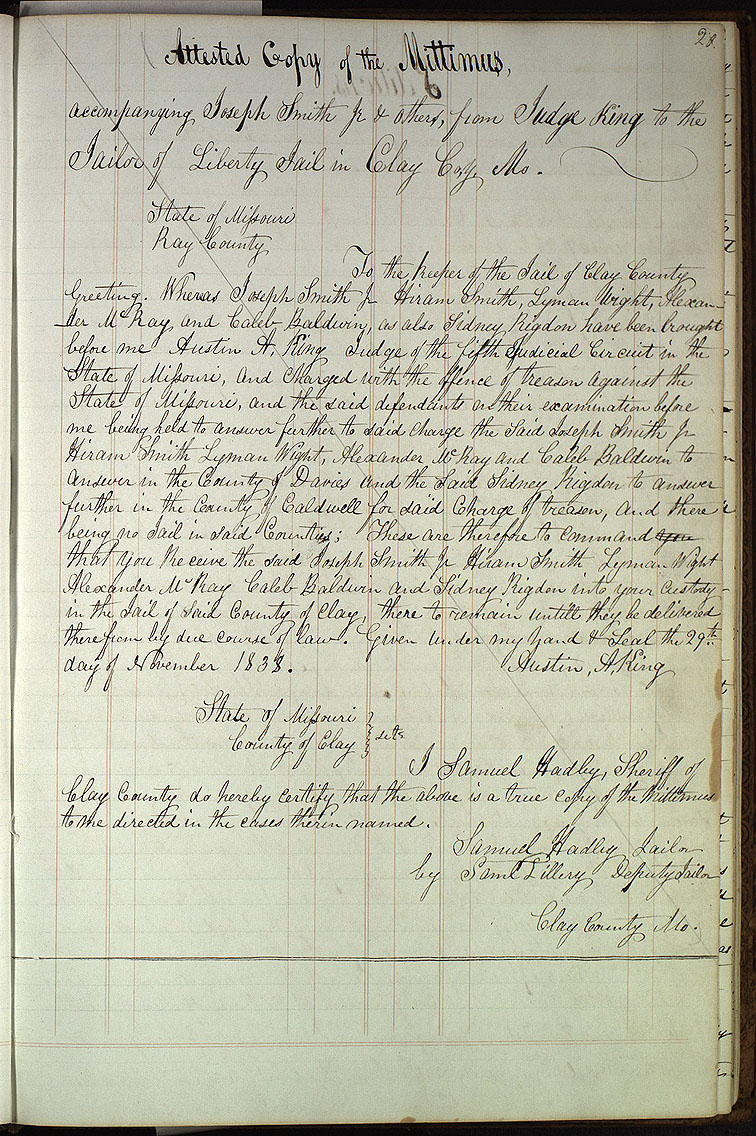 28
Attested Copy of the Mittimus,
accompanying Joseph Smith Jr & others, from Judge King to the
Jailor of Liberty Jail in Clay Coy, Mo.
State of Missouri
Ray County
To the keeper of the Jail of Clay County
Greeting. Whereas Joseph Smith Jr Hiram Smith, Lyman Wight, Alexan-
der McRay, and Caleb Baldwin, as also Sidney Rigdon have been brought
before me Austin A. King Judge of the fifth Judicial Circuit in the
State of Missouri, and Charged with the offence of treason against the
State of Missouri, and the said defendants on their examination before
me being held to answer further to said charge the Said Joseph Smith Jr
Hiram Smith Lyman Wight, Alexander McRay and Caleb Baldwin to
answer in the County of Davies and the Said Sidney Rigdon to answer
further in the County of Caldwell for said Charge of treason, and there
being no Jail in said Counties; These are therefore to command you
that you Receive the said Joseph Smith Jr Hiram Smith Lyman Wight
Alexander McRay Caleb Baldwin and Sidney Rigdon into your Custody
in the Jail of said County of Clay, there to remain untill they be delivered
therefrom by due course of law. Given under my hand & Seal the 29th
day of November 1838. Austin, A, King
State of Missouri
County of Clay } sct.
I Samuel Hadley, Sheriff of
Clay County do hereby certify that the above is a true copy of the Mittimus
to me directed in the cases therin named.
Samuel Hadley Jailor
by Saml Tillery Deputy Jailor
Clay County Mo.